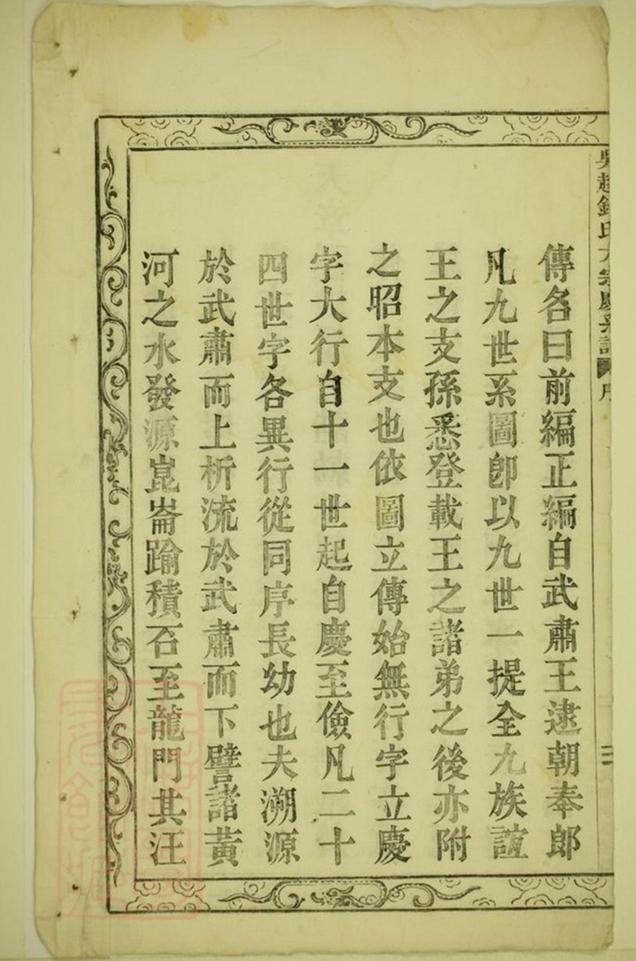 吳越錢氏大宗慶系譜 序
傳名曰前編正編自武肅王逮朝奉郎
凡九世系圖卽以九世一提全九族誼
王之支孫悉登載王之諸弟之後亦附
之昭本支也依圖立傳始無行字立慶
字大行自十一世起自慶至儉凡二十
四世字各異行從同序長幼也夫溯源
於武肅而上析流於武肅而下譬諸黃
河之水發源崑崙踰積石至龍門其汪